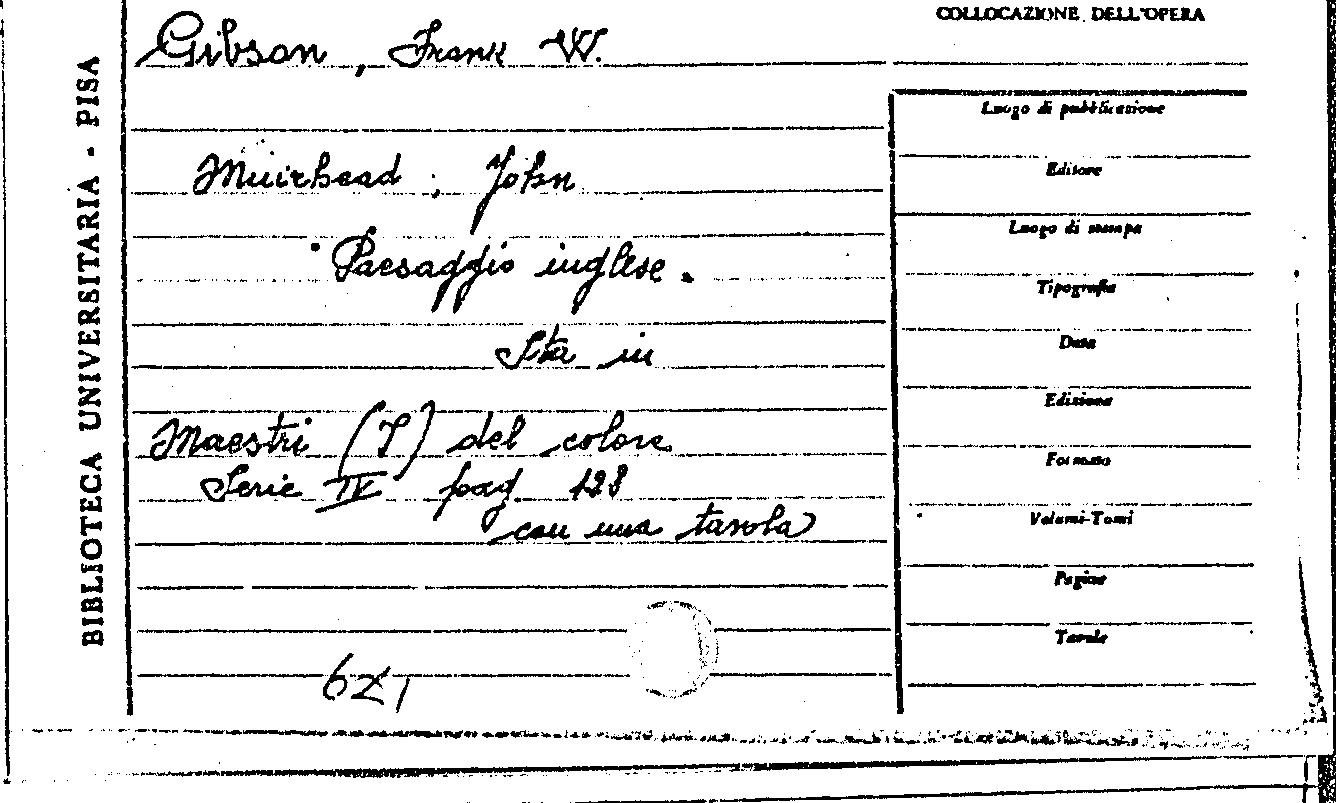 COLLOCAZIONE DELL'OPERA
BIBLIOTECA UNIVERSITARIA - PISA
Gibson, Frank W.
Muirhead, John
Paesaggio inglese.
Sta in
Maestri (I) del colore
Serie IV pag. 128
con una tavola
Luogo di pubblicazione
Editore
Luogo di stampa
Tipografia
Data
Edizione
Formato
Volumi-Tomi
Pagine
Tavole